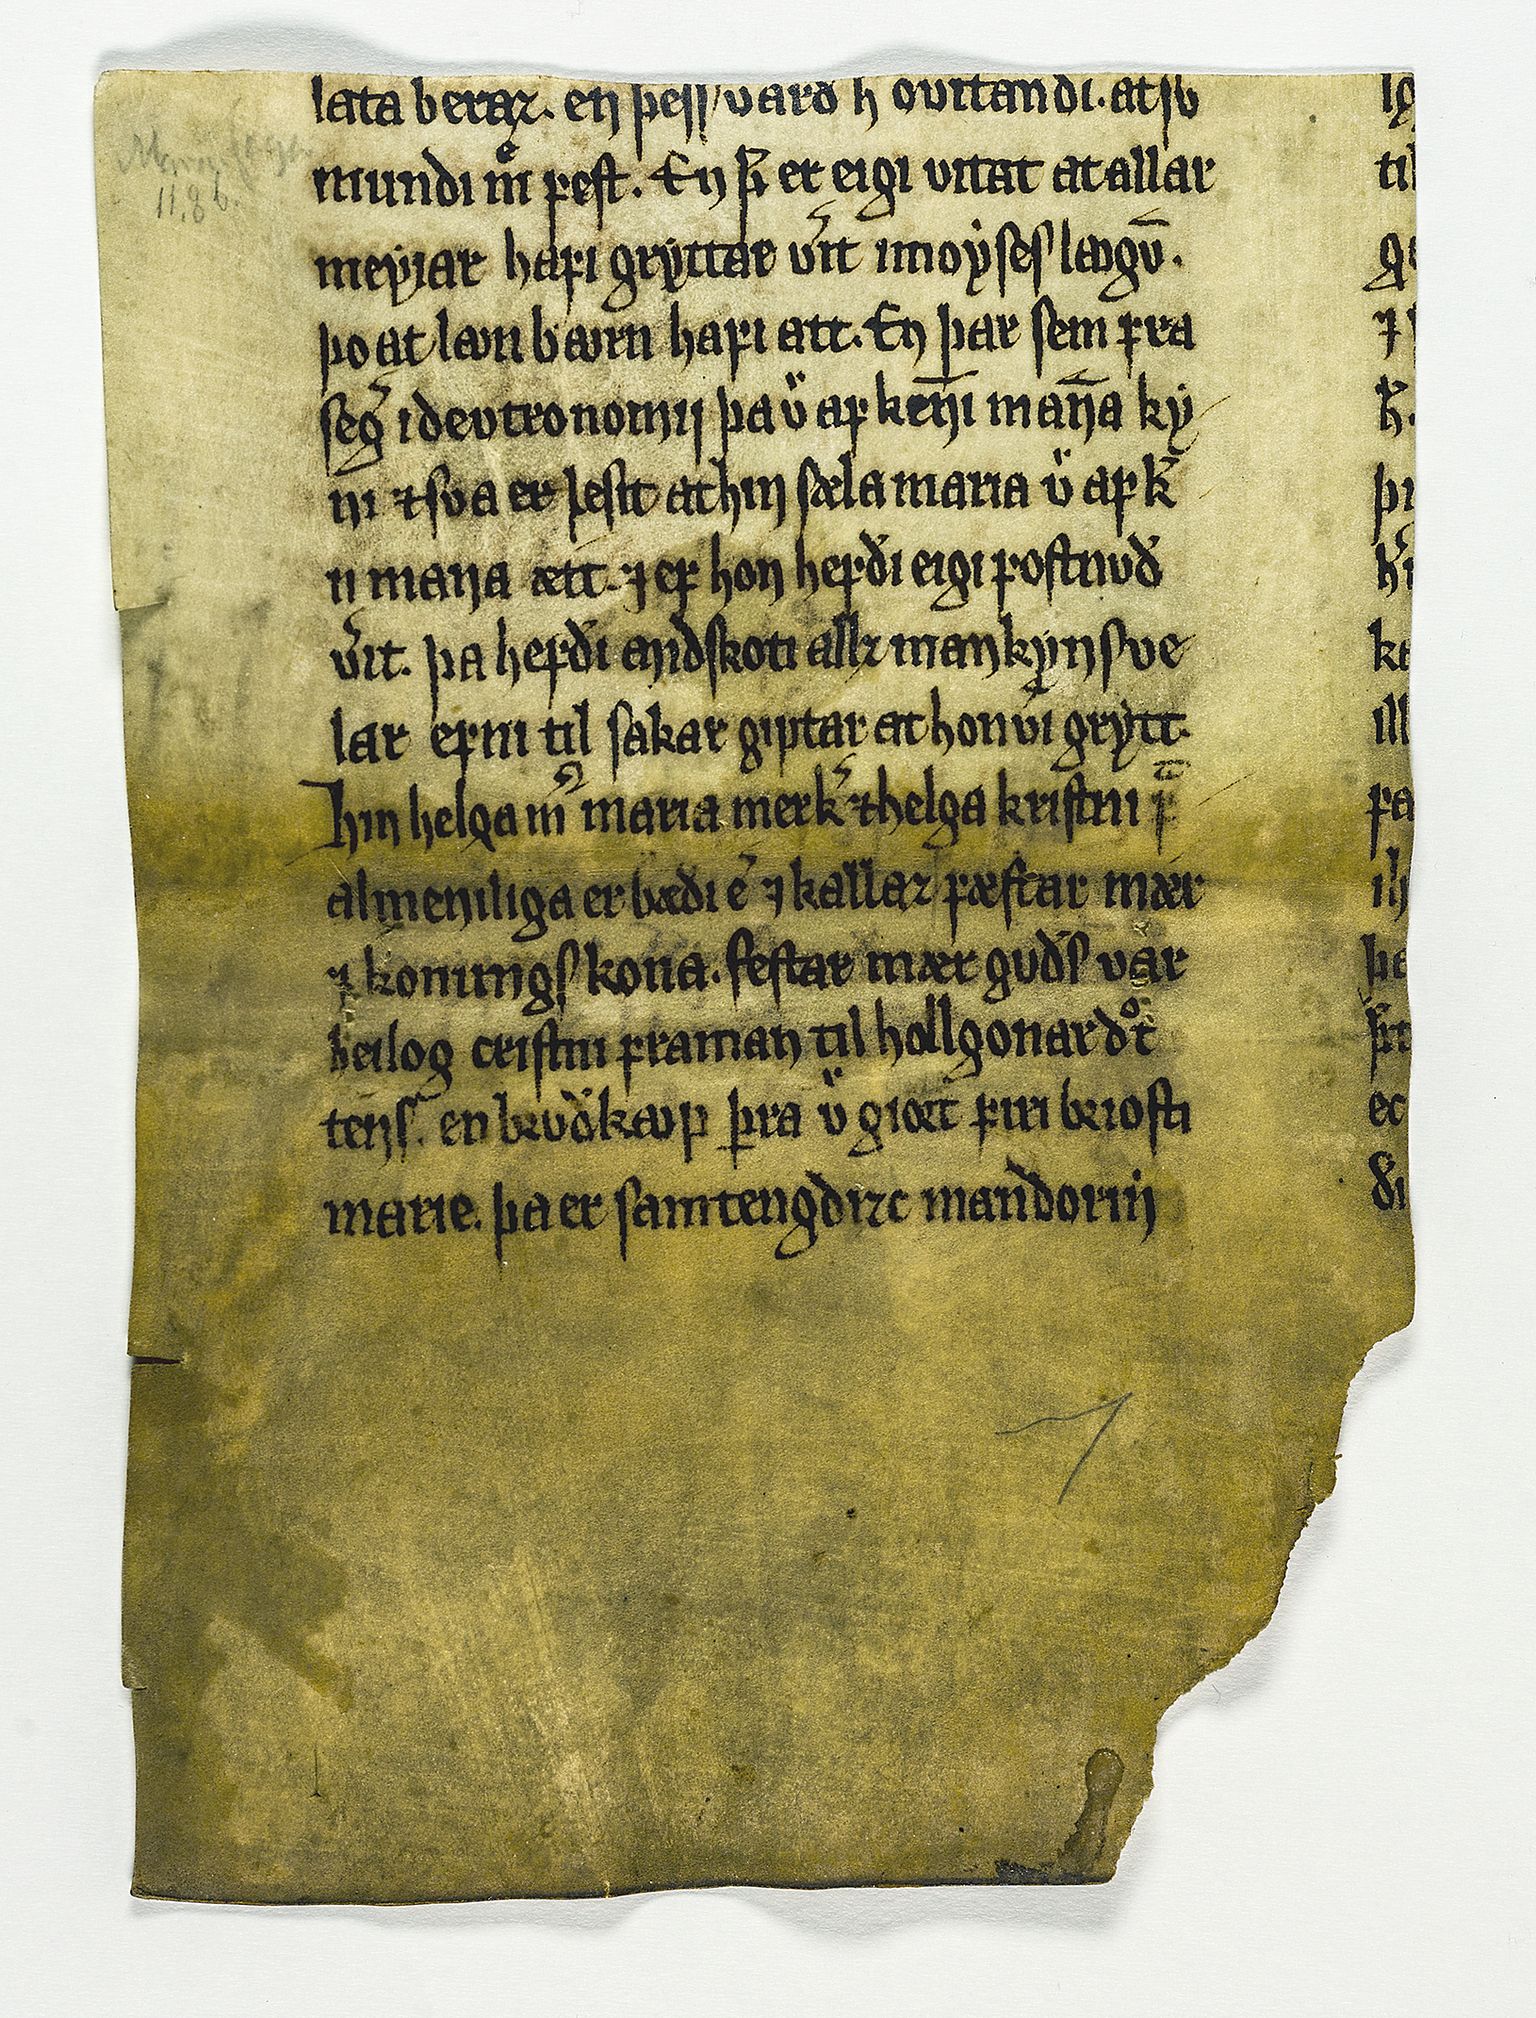 lata beraz. en þess varð h ovitandi. at sv
mundi mͤ ꝼest. En þͬ er eigi vitat at allar
meyiar haꝼi grẏttar v͛it i moẏses laꜹgv̄.
þo at laun baurn haꝼi att. En þar sem ꝼra
seg͛ i devtronomij þa v̈ aꝼ ken̄i man̄a ky
ni ⁊ sva er lesit at hin sæla maria v̈ aꝼ k͛
n mana ætt. ⁊ eꝼ hon heꝼði eigi ꝼostnvð
v͛it. þa heꝼði andskoti allz mankyns ve
lar eꝼni til sakar giptar at hon v͛i grẏtt.
hin helga m͛ maria merk͛ ⁊ helga kristni
almeniliga er bæði e͛ ⁊ kallaz ꝼæstar mær
⁊ konungs kona. festar mær guðs var
heilog cristni ꝼraman til hollgonar dͦt
tens. en brvðkaup þra v̈ giort ꝼiri briosti
marie. þa er samtengdizc mandomj
til
⁊
k͛.
þi
ill
ꝼa
þa
ec
di